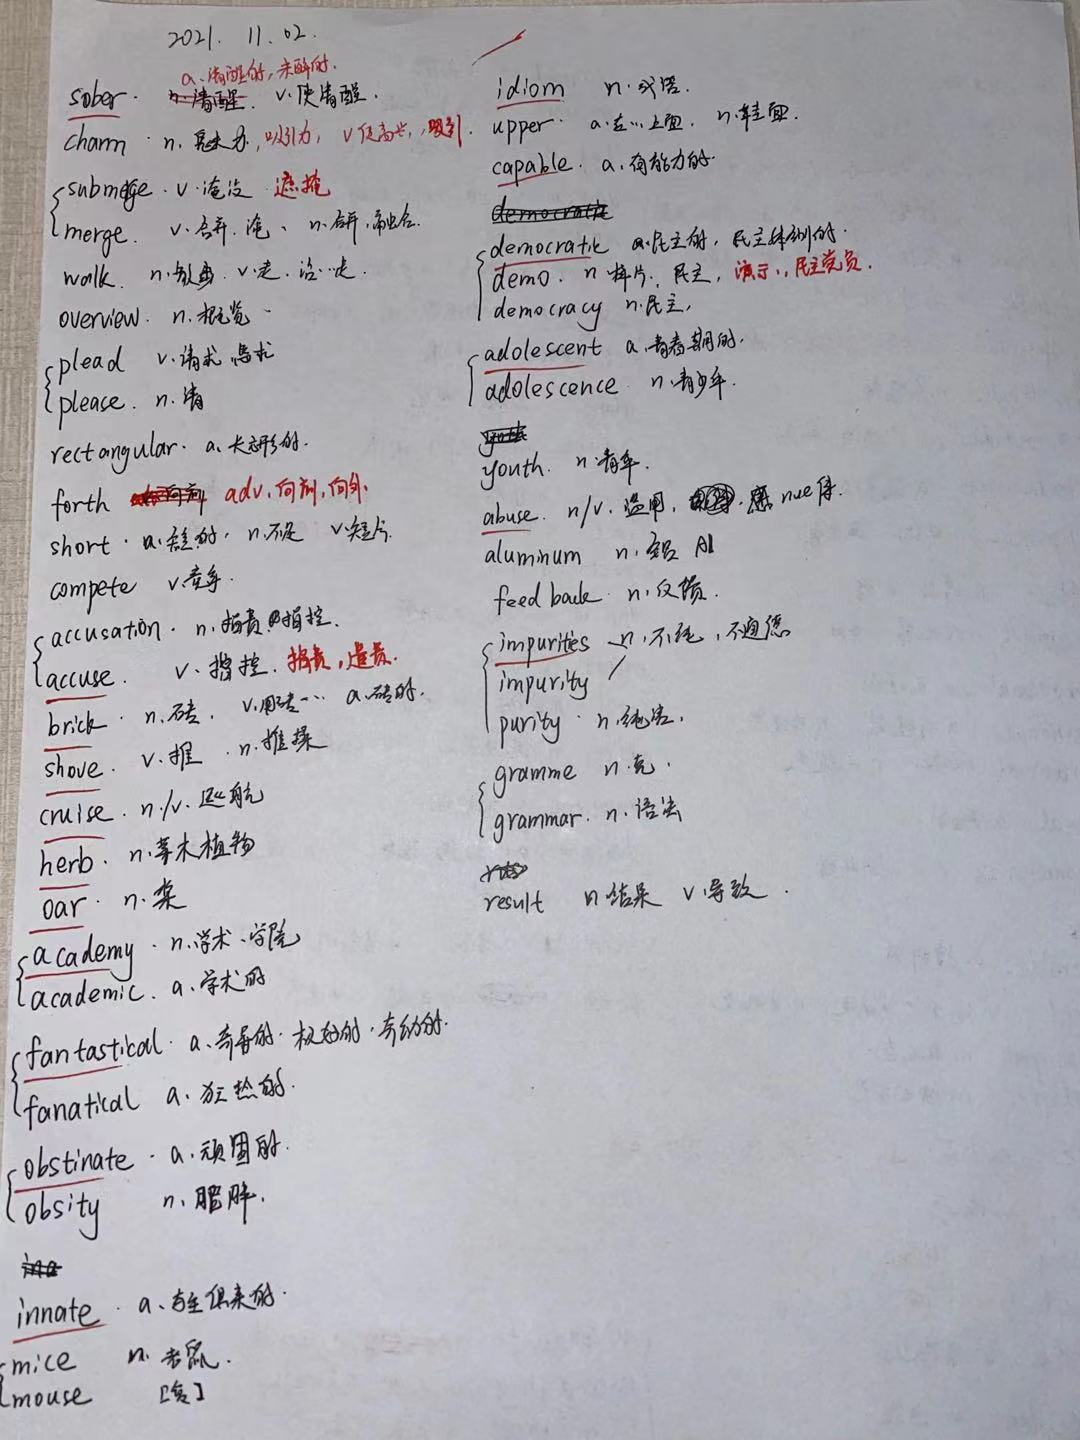 2021. 11. 02.
a. 清醒的, 未醉的.
sober. n. 清醒. v. 使清醒.
charm. n. 魅力, 吸引力, v 使高兴, 吸引.
submerge. v. 淹没. 遮掩
merge. v. 合并. 淹、 n. 合并, 融合.
walk. n. 散步. v. 走. 沿…走.
overview. n. 概览.
plead v. 请求. 恳求
please. n. 请
rectangular. a. 长方形的.
forth adv. 向前, 向外.
short. a. 短的. n. 不足 v. 短
compete v. 竞争.
accusation. n. 指责 指控.
accuse. v. 指控. 指责, 谴责.
brick. n. 砖. v. 用砖… a. 砖的.
shove. v. 推. n. 推搡
cruise. n./v. 巡航
herb. n. 草木植物
oar. n. 桨
academy. n. 学术、学院
academic. a. 学术的
fantastical. a. 奇异的. 极好的.
fanatical a. 狂热的.
obstinate. a. 顽固的.
obsity n. 肥胖.
innate. a. 与生俱来的.
mice n. 老鼠.
mouse [复]
idiom n. 成语.
upper. a. 在…上面. n. 鞋面.
capable. a. 有能力的.
democratic
democratic a. 民主的, 民主体制的.
demo. n. 样片. 民主, 演示, 民主党员.
democracy n. 民主,
adolescent a. 青春期的.
adolescence. n. 青少年.
youth. n. 青年.
abuse. n/v. 滥用, nue待.
aluminum n. 铝 Al
feed back. n. 反馈.
impurities n. 不纯, 不道德
impurity
purity. n. 纯洁.
gramme n. 克.
grammar. n. 语法
result n. 结果 v. 导致.